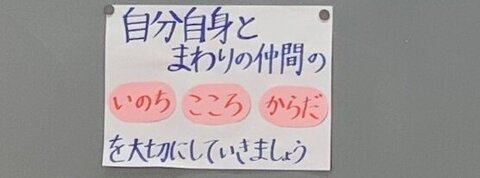 自分自身と
まわりの仲間の
いのち こころ からだ
を大切にしていきましょう